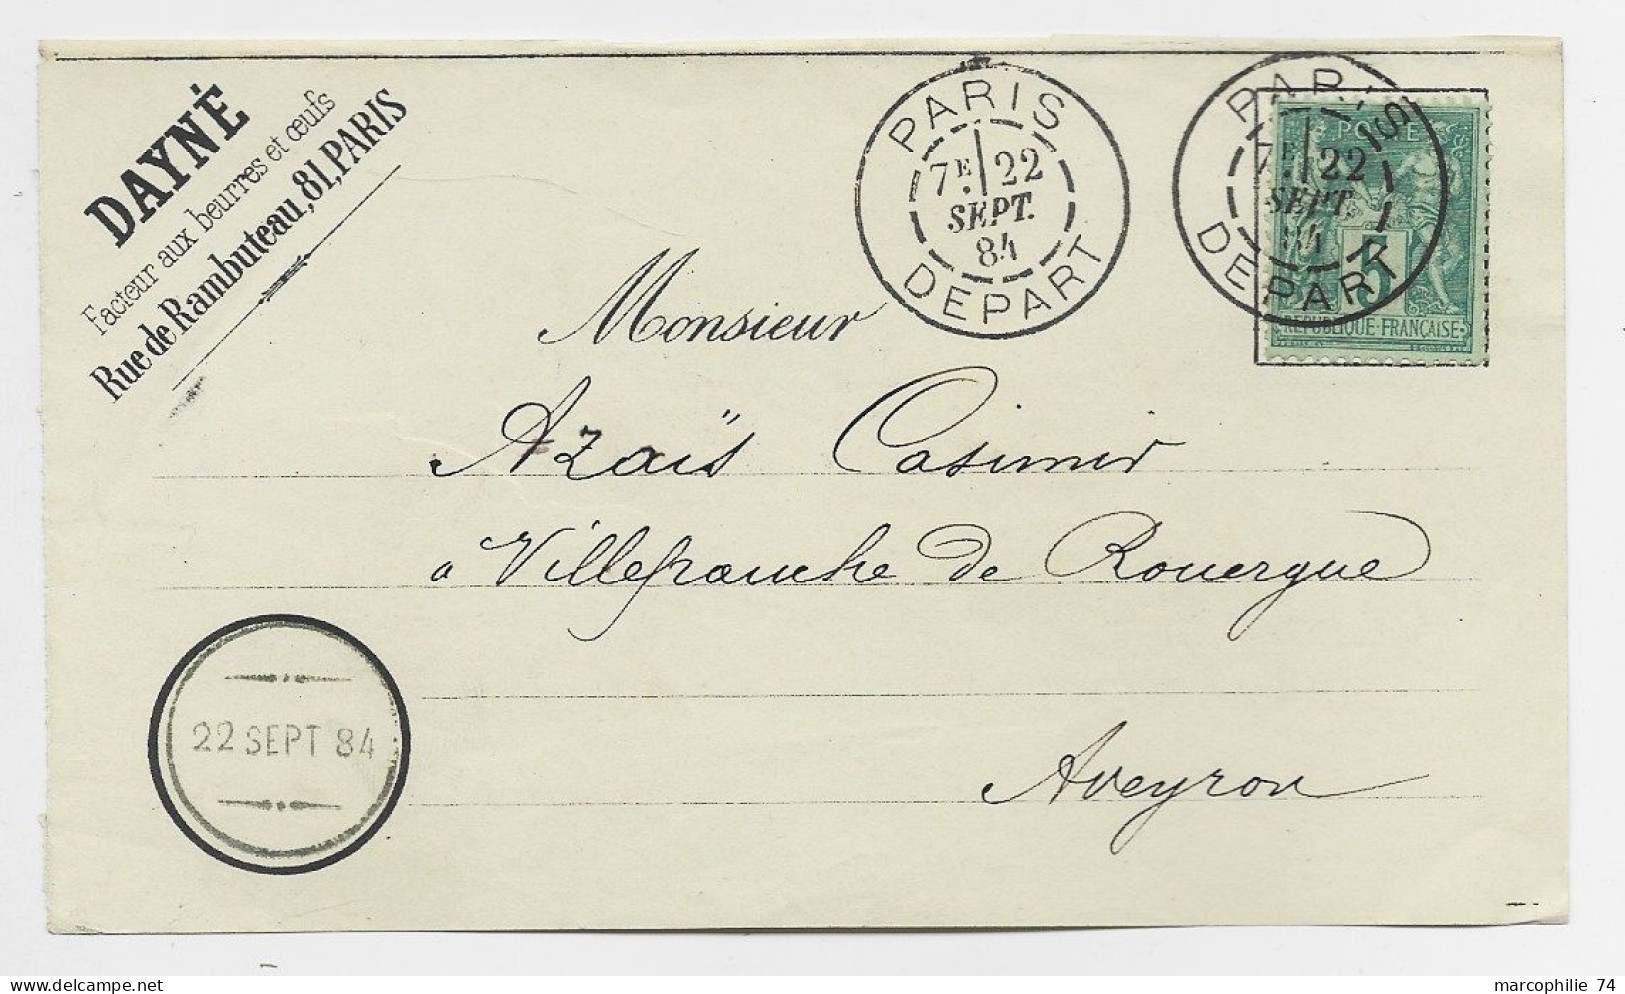 DAYNÉ
Facteur aux beurres et œufs
Rue de Rambuteau, 81, PARIS
PARIS
7E 22
SEPT.
84
DEPART
PARIS
7E 22
SEPT.
84
DEPART
POSTE
5
REPUBLIQUE FRANÇAISE
Monsieur
Azaïs Casimir
a Villefranche de Rouergue
22 SEPT 84
Aveyron
marcophilie 74